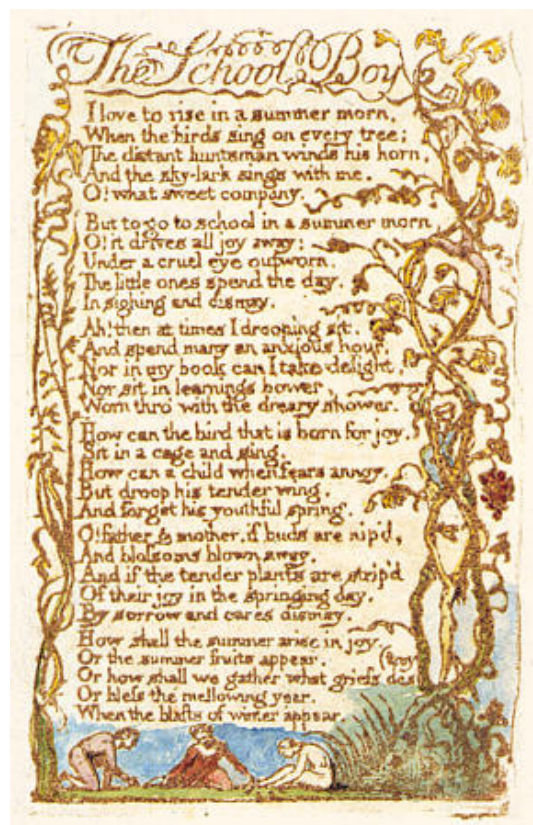 The School Boy
I love to rise in a summer morn,
When the birds sing on every tree;
The distant huntsman winds his horn,
And the sky-lark sings with me.
O! what sweet company.
But to go to school in a summer morn
O! it drives all joy away;
Under a cruel eye outworn.
The little ones spend the day.
In sighing and dismay.
Ah! then at times I drooping sit.
And spend many an anxious hour,
Nor in my book can I take delight,
Nor sit in learnings bower,
Worn thro' with the dreary shower.
How can the bird that is born for joy,
Sit in a cage and sing.
How can a child when fears annoy,
But droop his tender wing,
And forget his youthful spring.
O! father & mother, if buds are nip'd,
And blossoms blown away,
And if the tender plants are strip'd
Of their joy in the springing day,
By sorrow and cares dismay.
How shall the summer arise in joy.
Or the summer fruits appear.
Or how shall we gather what griefs des
(troy
Or bless the mellowing year.
When the blasts of winter appear.